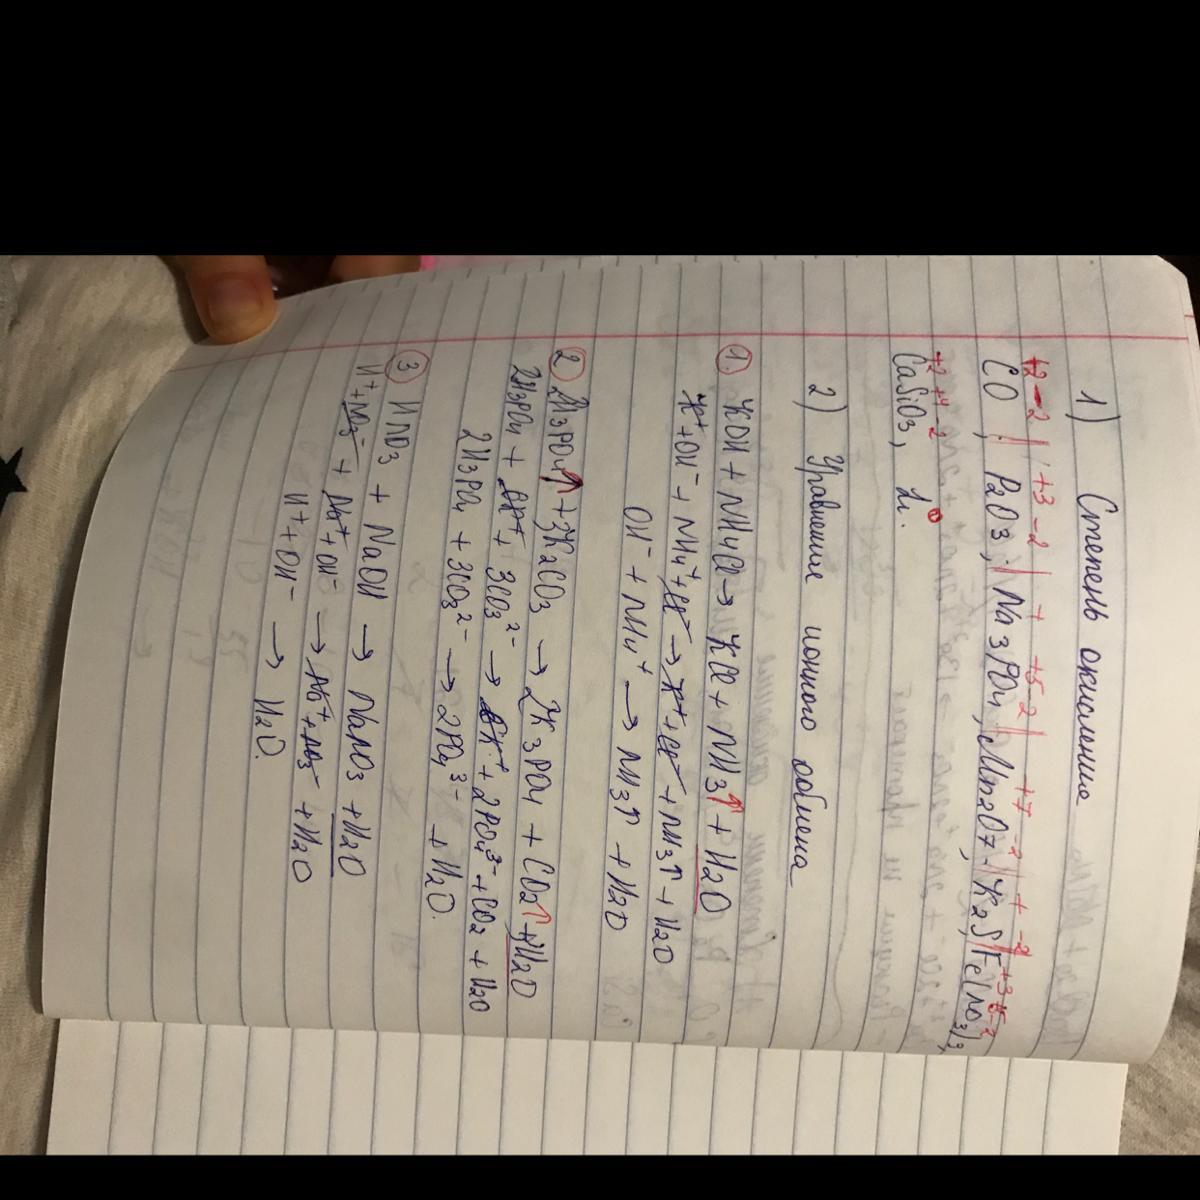 1) Степень окисления
+2 -2 | +3 -2 | + +5 -2 | +7 -2 | + -2 | +3 +5 -2
CO, P2O3, Na3PO4, Mn2O7, K2S, Fe(NO3)3,
+2 +4 -2 0
CaSiO3, Li.
2) Уравнение ионного обмена
1. KOH + NH4Cl → KCl + NH3↑ + H2O
K+ + OH- + NH4+ + Cl- → K+ + Cl- + NH3↑ + H2O
OH- + NH4+ → NH3↑ + H2O
2 2H3PO4 + 3K2CO3 → 2K3PO4 + CO2↑ + H2O
2H3PO4 + 6K+ + 3CO3 2- → 6K+ + 2PO4 3- + CO2 + H2O
2H3PO4 + 3CO3 2- → 2PO4 3- + H2O.
3 HNO3 + NaOH → NaNO3 + H2O
H+ + NO3- + Na+ + OH- → Na+ + NO3- + H2O
H+ + OH- → H2O.